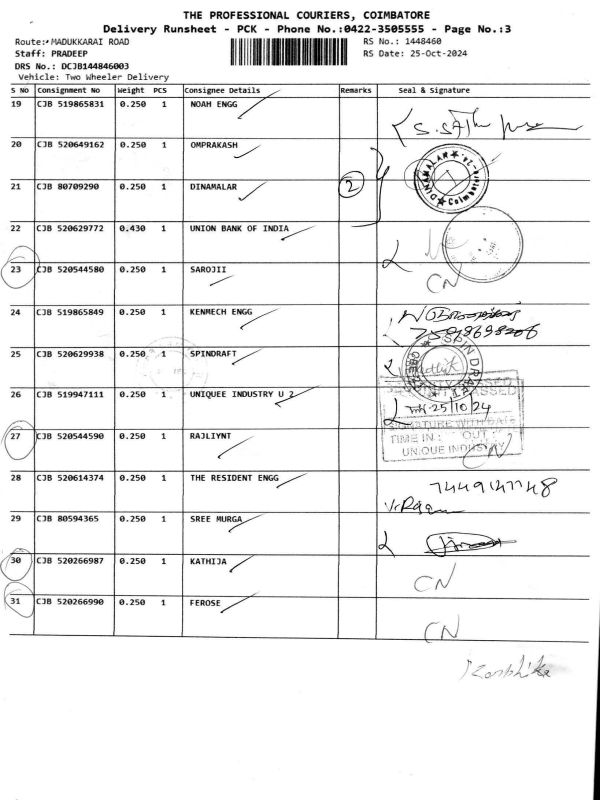 THE PROFESSIONAL COURIERS, COIMBATORE
Delivery Runsheet - PCK - Phone No.:0422-3505555 - Page No.:3
Route: MADUKKARAI ROAD RS No.: 1448460
Staff: PRADEEP RS Date: 25-Oct-2024
DRS No.: DCJB144846003
Vehicle: Two Wheeler Delivery
S No Consignment No Weight PCS Consignee Details Remarks Seal & Signature
19 CJB 519865831 0.250 1 NOAH ENGG
20 CJB 520649162 0.250 1 OMPRAKASH
21 CJB 80709290 0.250 1 DINAMALAR 2 DINAMALAR Coimbatore
22 CJB 520629772 0.430 1 UNION BANK OF INDIA
23 CJB 520544580 0.250 1 SAROJII CN
24 CJB 519865849 0.250 1 KENMECH ENGG
25 CJB 520629938 0.250 1 SPINDRAFT SPIN DRAFT
26 CJB 519947111 0.250 1 UNIQUEE INDUSTRY U 2 25/10/24
SIGNATURE WITH DATE
TIME IN : OUT
UNIQUE INDUSTRY
27 CJB 520544590 0.250 1 RAJLIYNT CN
28 CJB 520614374 0.250 1 THE RESIDENT ENGG
29 CJB 80594365 0.250 1 SREE MURGA
30 CJB 520266987 0.250 1 KATHIJA CN
31 CJB 520266990 0.250 1 FEROSE CN